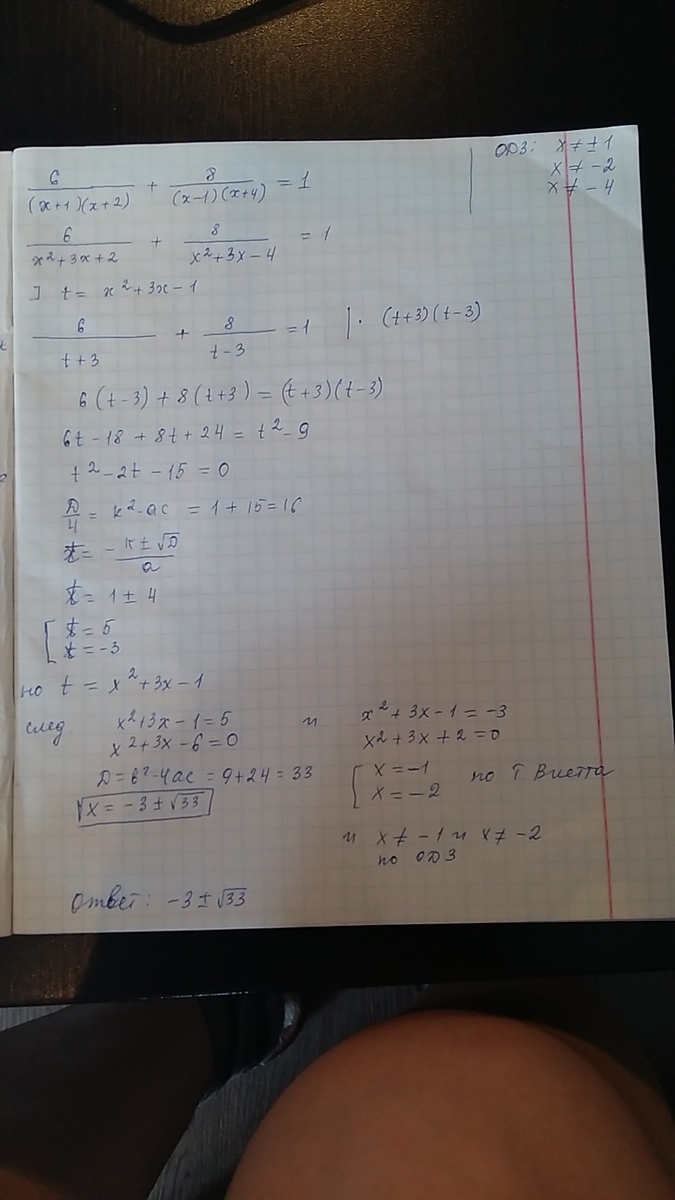 6/((x+1)(x+2)) + 8/((x-1)(x+4)) = 1
ОДЗ: x ≠ ± 1
x ≠ -2
x ≠ -4
6/(x²+3x+2) + 8/(x²+3x-4) = 1
] t = x²+3x-1
6/(t+3) + 8/(t-3) = 1 | · (t+3)(t-3)
6(t-3) + 8(t+3) = (t+3)(t-3)
6t-18 + 8t+24 = t²-9
t²-2t-15 = 0
D/4 = k²-ac = 1+15=16
t = -k±√D/a
t = 1 ± 4
[ t = 5
t = -3
но t = x²+3x-1
след x²+3x-1=5 и x²+3x-1=-3
x²+3x-6=0 x²+3x+2=0
D=b²-4ac = 9+24=33 [ x=-1 по т Виетта
x = -3±√33 x=-2
и x≠-1 и x≠-2
по ОДЗ
Ответ: -3±√33